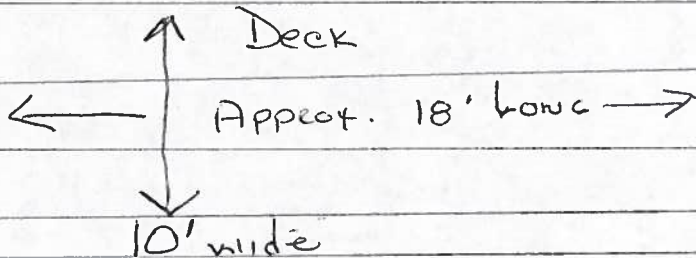 Deck
Approx. 18' Long
10' wide